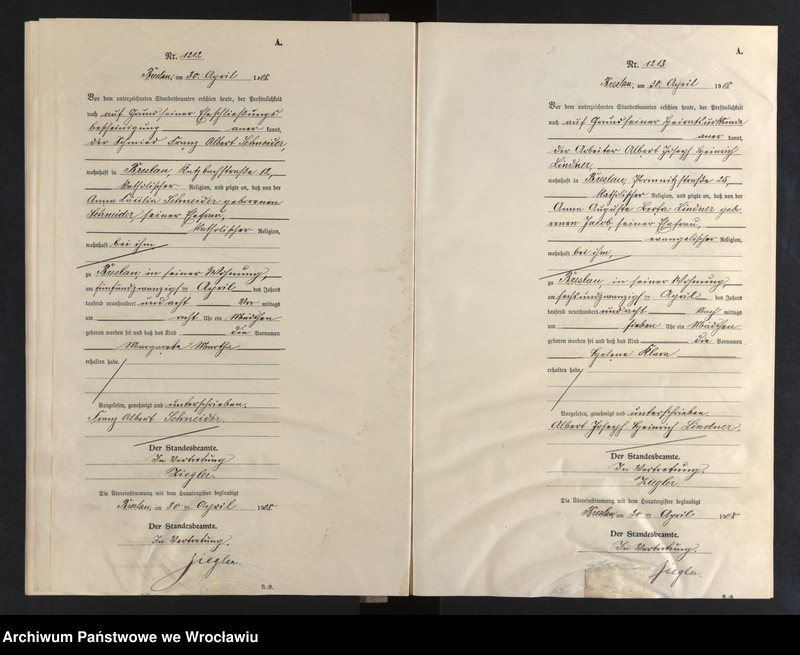 A.
Nr. 1212
Breslau, am 30. April 1908
Vor dem unterzeichneten Standesbeamten erschien heute, der Persönlichkeit
nach auf Grund seiner Eheschließungs
bescheinigung anerkannt,
der Schmied Franz Albert Schneider,
wohnhaft in Breslau, Katzbachstraße 12,
katholischer Religion, und zeigte an, daß von der
Anna Cäcilia Schneider geborenen
Schneider, seiner Ehefrau,
katholischer Religion,
wohnhaft bei ihm,
zu Breslau in seiner Wohnung,
am fünfundzwanzigsten April des Jahres
tausend neunhundert und acht Vor mittags
um acht Uhr ein Mädchen
geboren worden sei und daß das Kind die Vornamen
Margarete Martha
erhalten habe.
Vorgelesen, genehmigt und unterschrieben.
Franz Albert Schneider.
Der Standesbeamte.
In Vertretung
Ziegler.
Die Übereinstimmung mit dem Hauptregister beglaubigt
Breslau, am 30 ten April 1908
Der Standesbeamte.
In Vertretung.
Ziegler.
A.
Nr. 1213
Breslau, am 30. April 1908
Vor dem unterzeichneten Standesbeamten erschien heute, der Persönlichkeit
nach auf Grund seiner Heiratsurkunde
anerkannt,
der Arbeiter Albert Joseph Heinrich
Lindner,
wohnhaft in Breslau, 25,
katholischer Religion, und zeigte an, daß von der
Anna Auguste Berta Lindner gebo
renen Jacob, seiner Ehefrau,
evangelischer Religion,
wohnhaft bei ihm,
zu Breslau in seiner Wohnung
am sechsundzwanzigsten April des Jahres
tausend neunhundert und acht Nach mittags
um sieben Uhr ein Mädchen
geboren worden sei und daß das Kind die Vornamen
Helene Klara
erhalten habe
Vorgelesen, genehmigt und unterschrieben.
Albert Joseph Heinrich Lindner.
Der Standesbeamte.
In Vertretung.
Ziegler.
Die Übereinstimmung mit dem Hauptregister beglaubigt
Breslau, am 30 ten April 1908
Der Standesbeamte.
In Vertretung.
Ziegler.
Archiwum Państwowe we Wrocławiu